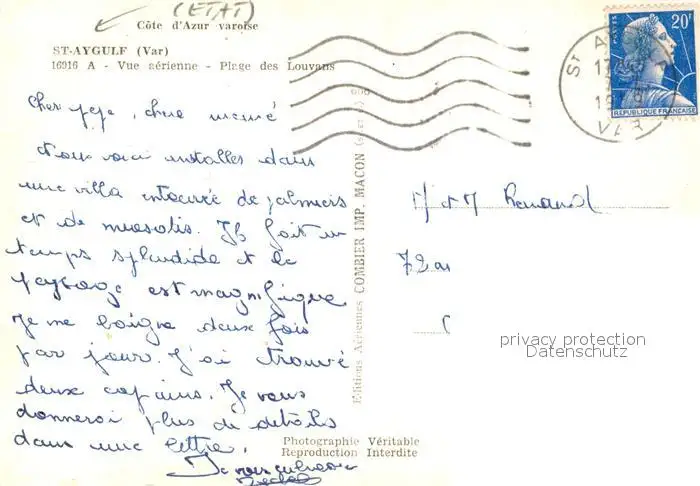 (ETAT)
Côte d'Azur varoise
ST-AYGULF (Var)
16916 A - Vue aérienne - Plage des Louvans
cher pepe, chere mémé
Nous voici installes dans
une villa entourée de palmiers
et de mimosas. Il fait un
temps splendide et le
paysage est magnifique
Je me baigne deux fois
par jour. J'ai trouvé
deux copains. Je vous
donnerai plus de détails
dans une lettre.
Je vous embrasse
Editions Aériennes COMBIER IMP. MACON
Photographie Véritable
Reproduction Interdite
POSTES
20F
REPUBLIQUE FRANÇAISE
ST A
VAR
M et M Renaud
72
privacy protection
Datenschutz